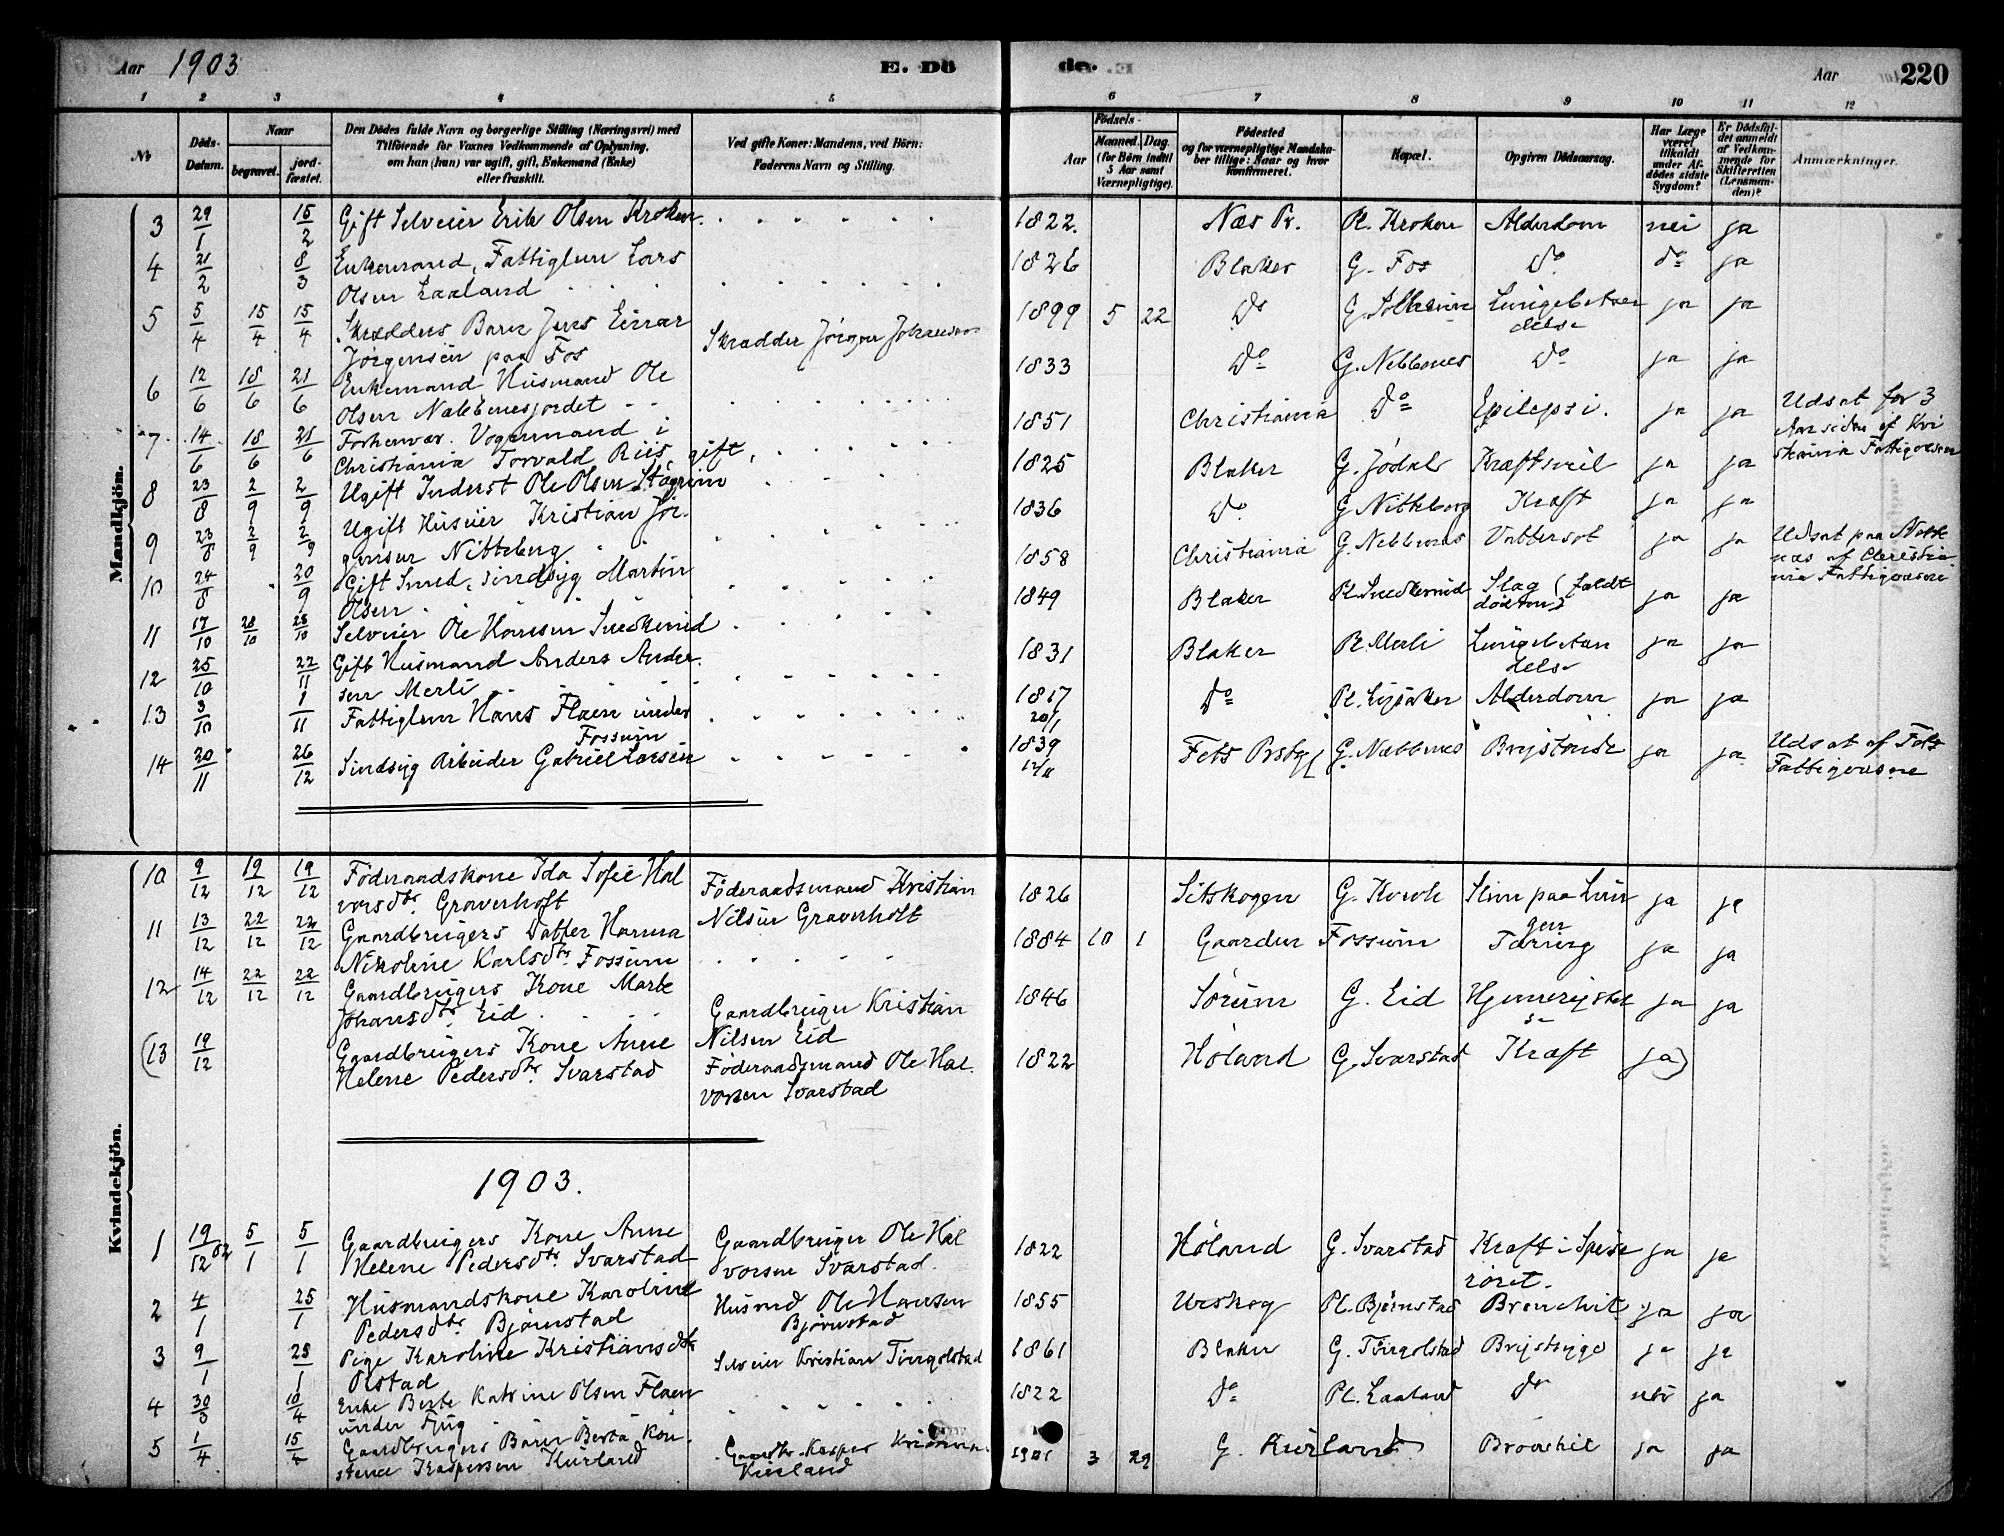 Aar 1903 E. Dö
de. Aar 220
1 2 3 4 5 6 7 8 9 10 11 12
No
Döds-Datum.
Naar
begravet.
jord-fæstet.
Den Dödes fulde Navn og borgerlige Stilling (Næringsvei) med
Tilföiende for Voxnes Vedkommende af Oplysning,
om han (hun) var ugift, gift, Enkemand (Enke)
eller fraskilt.
Ved gifte Koner: Mandens, ved Börn:
Faderens Navn og Stilling.
Födsels-
Aar
Maaned. Dag.
(for Börn indtil
5 Aar samt
Værnepligtige).
Födested
og for værnepligtige Mandska-
ber tillige: Naar og hvor
konfirmeret.
Bopæl.
Opgiven Dödsaarsag.
Har Læge
været
tilkaldt
under Af-
dödes sidste
Sygdom?
Er Dödsfal-
det anmeldt
af Vedkom-
mende for
Skifteretten
(Lensman-
den)?
Anmærkninger.
Mandkjön.
3 29/1 15/2 Gift Selveier Erik Olsen Kroken 1822. Næs Pr. Pl. Kroken Alderdom nei ja
4 21/2 8/3 Enkemand, Fattiglem Lars
Olsen Laaland 1826 Blaker G. Fos Do do ja
5 5/4 15/4 15/4 Skrædders Barn Jens Einar
Jørgensen paa Fos Skrædder Jørgen Johansen 1899 5 22 Do G. Solheim Lungebetæn
delse ja ja
6 12/6 18/6 21/6 Enkemand Husmand Ole
Olsen Nabbenesjordet 1833 Do G. Nebbenes Do ja ja
7 14/6 18/6 21/6 Forhenvær. Vognmand i
Christiania Torvald Riis, gift, 1851 Christiania Do Epilepsi. ja ja Udsat for 3
Aar siden af Kri
stiania Fattigvæsen
8 23/8 2/9 2/9 Ugift Inderst Ole Olsen 1825 Blaker G. Jødal Kræftsvül ja ja
9 23/8 2/9 2/9 Ugift Huseier Kristian Jör-
gensen Nitteberg 1836 Do G Nitteberg Kræft ja ja
10 24/8 20/9 Gift Smed, sindsyg Martin
Olsen 1858 Christiania G. Nebbenes Vattersot ja ja Udsat paa Nabb
næs af Christia
nia Fattigvæsen
11 17/10 28/10 25/10 Selveier Ole Hansen Snekkerud 1849 Blaker Pl. Snekkerud Slag (faldt
død om) ja ja
12 25/10 22/11 Gift Husmand Anders Ander-
sen Merli 1831 Blaker Pl. Merli Lungebetæn
delse ja ja
13 3/10 1/11 Fattiglem Hans Flaen under
Fossum 1817
20/1 Do Alderdom ja ja
14 20/11 26/12 Sindsyg Arbeider Gabriel Larsen 1839
12/11 Fets Prstgj G. Nabbenes Brystonde ja ja Udsat af Fets
Fattigvæsne
Kvindekjön.
10 9/12 19/12 19/12 Föderaadskone Ida Sofie Hal
vorsdtr. Graverholt Föderaadsmand Kristian
Nilsen Graverholt 1826 Sitskogen Slim paa Lun
gen ja ja
11 13/12 22/12 22/12 Gaardbrugers Datter Hanna
Nikoline Karlsdtr. Fossum 1884 10 1 Gaarden Fossum Tæring ja ja
12 14/12 22/12 22/12 Gaardbrugers Kone Marte
Johansdtr. Eid Gaardbruger Kristian
Nilsen Eid 1846 Sørum G. Eid ja ja
(13 19/12 Gaardbrugers Kone Anne
Helene Pedersdtr. Svarstad Föderaadsmand Ole Hal.
vorsen Svarstad 1822 Høland G. Svarstad Kræft ja)
1903.
1 19/12 02 5/1 5/1 Gaardbrugers Kone Anne
Helene Pedersdtr. Svarstad Gaardbruger Ole Hal
vorsen Svarstad. 1822 Høland G. Svarstad Kræft i Spise
røret. ja ja
2 4/1 25/1 Husmandskone Karoline
Pedersdtr. Bjørnstad Husmd Ole Hansen
Bjørnstad 1855 Urskog Pl. Bjørnstad Bronchit. ja ja
3 9/1 25/1 Pige Karoline Kristiansdtr
Selveier Kristian Tingolstad 1861 Blaker G. Tingolstad Brystsyge ja ja
4 30/3 10/4 Enke Berte Katrine Olsen Flaen
under Fjug 1822 Do Pl. Laaland Do nei ja
5 1/4 15/4 Gaardbrugers Barn Berta Kon-
stance Kaspersen Kurland Gaardbr. Kasper
Kurland 1901 3 29 G. Kurland Bronchit ja ja